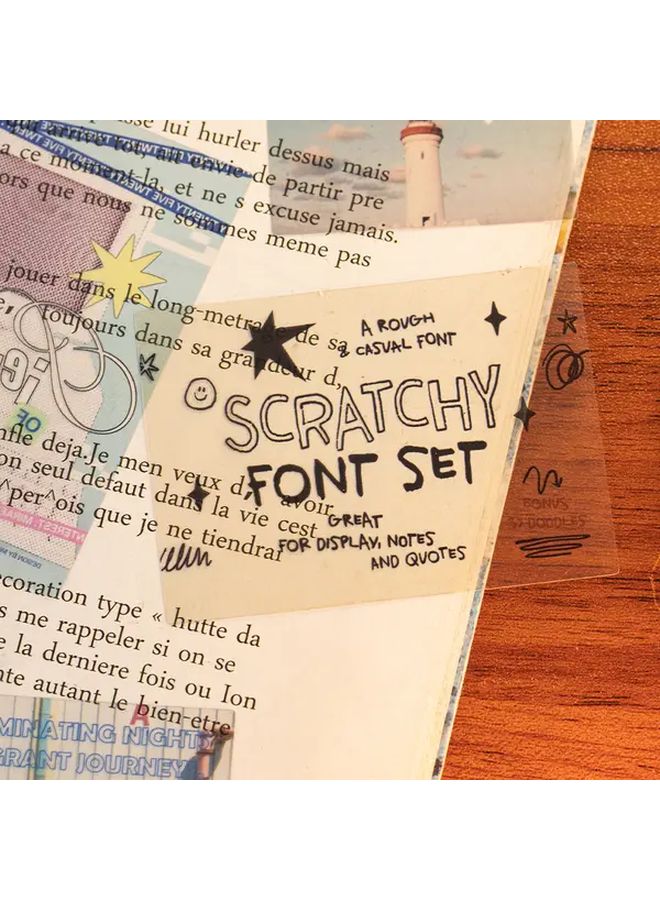 sse lui hurler dessus mais
qui arrive tot, au envie de partir pre
a ce moment-la, et ne s excuse jamais.
ors que nous ne sommes meme pas
jouer dans le long-metrage de sa
toujours dans sa grandeur d,
nfle deja.Je men veux d, avoir
on seul defaut dans la vie cest
^per^ois que je ne tiendrai
ecoration type « hutte da
s me rappeler si on se
e la derniere fois ou Ion
nte autant le bien-etre
A ROUGH
& CASUAL FONT
SCRATCHY
FONT SET
GREAT
FOR DISPLAY, NOTES
AND QUOTES
BONUS
37 DOODLES
TWENTY FIVE TWENTY FIVE
OF
DESIGN BY
MINATING NIGHT
GRANT JOURNEY